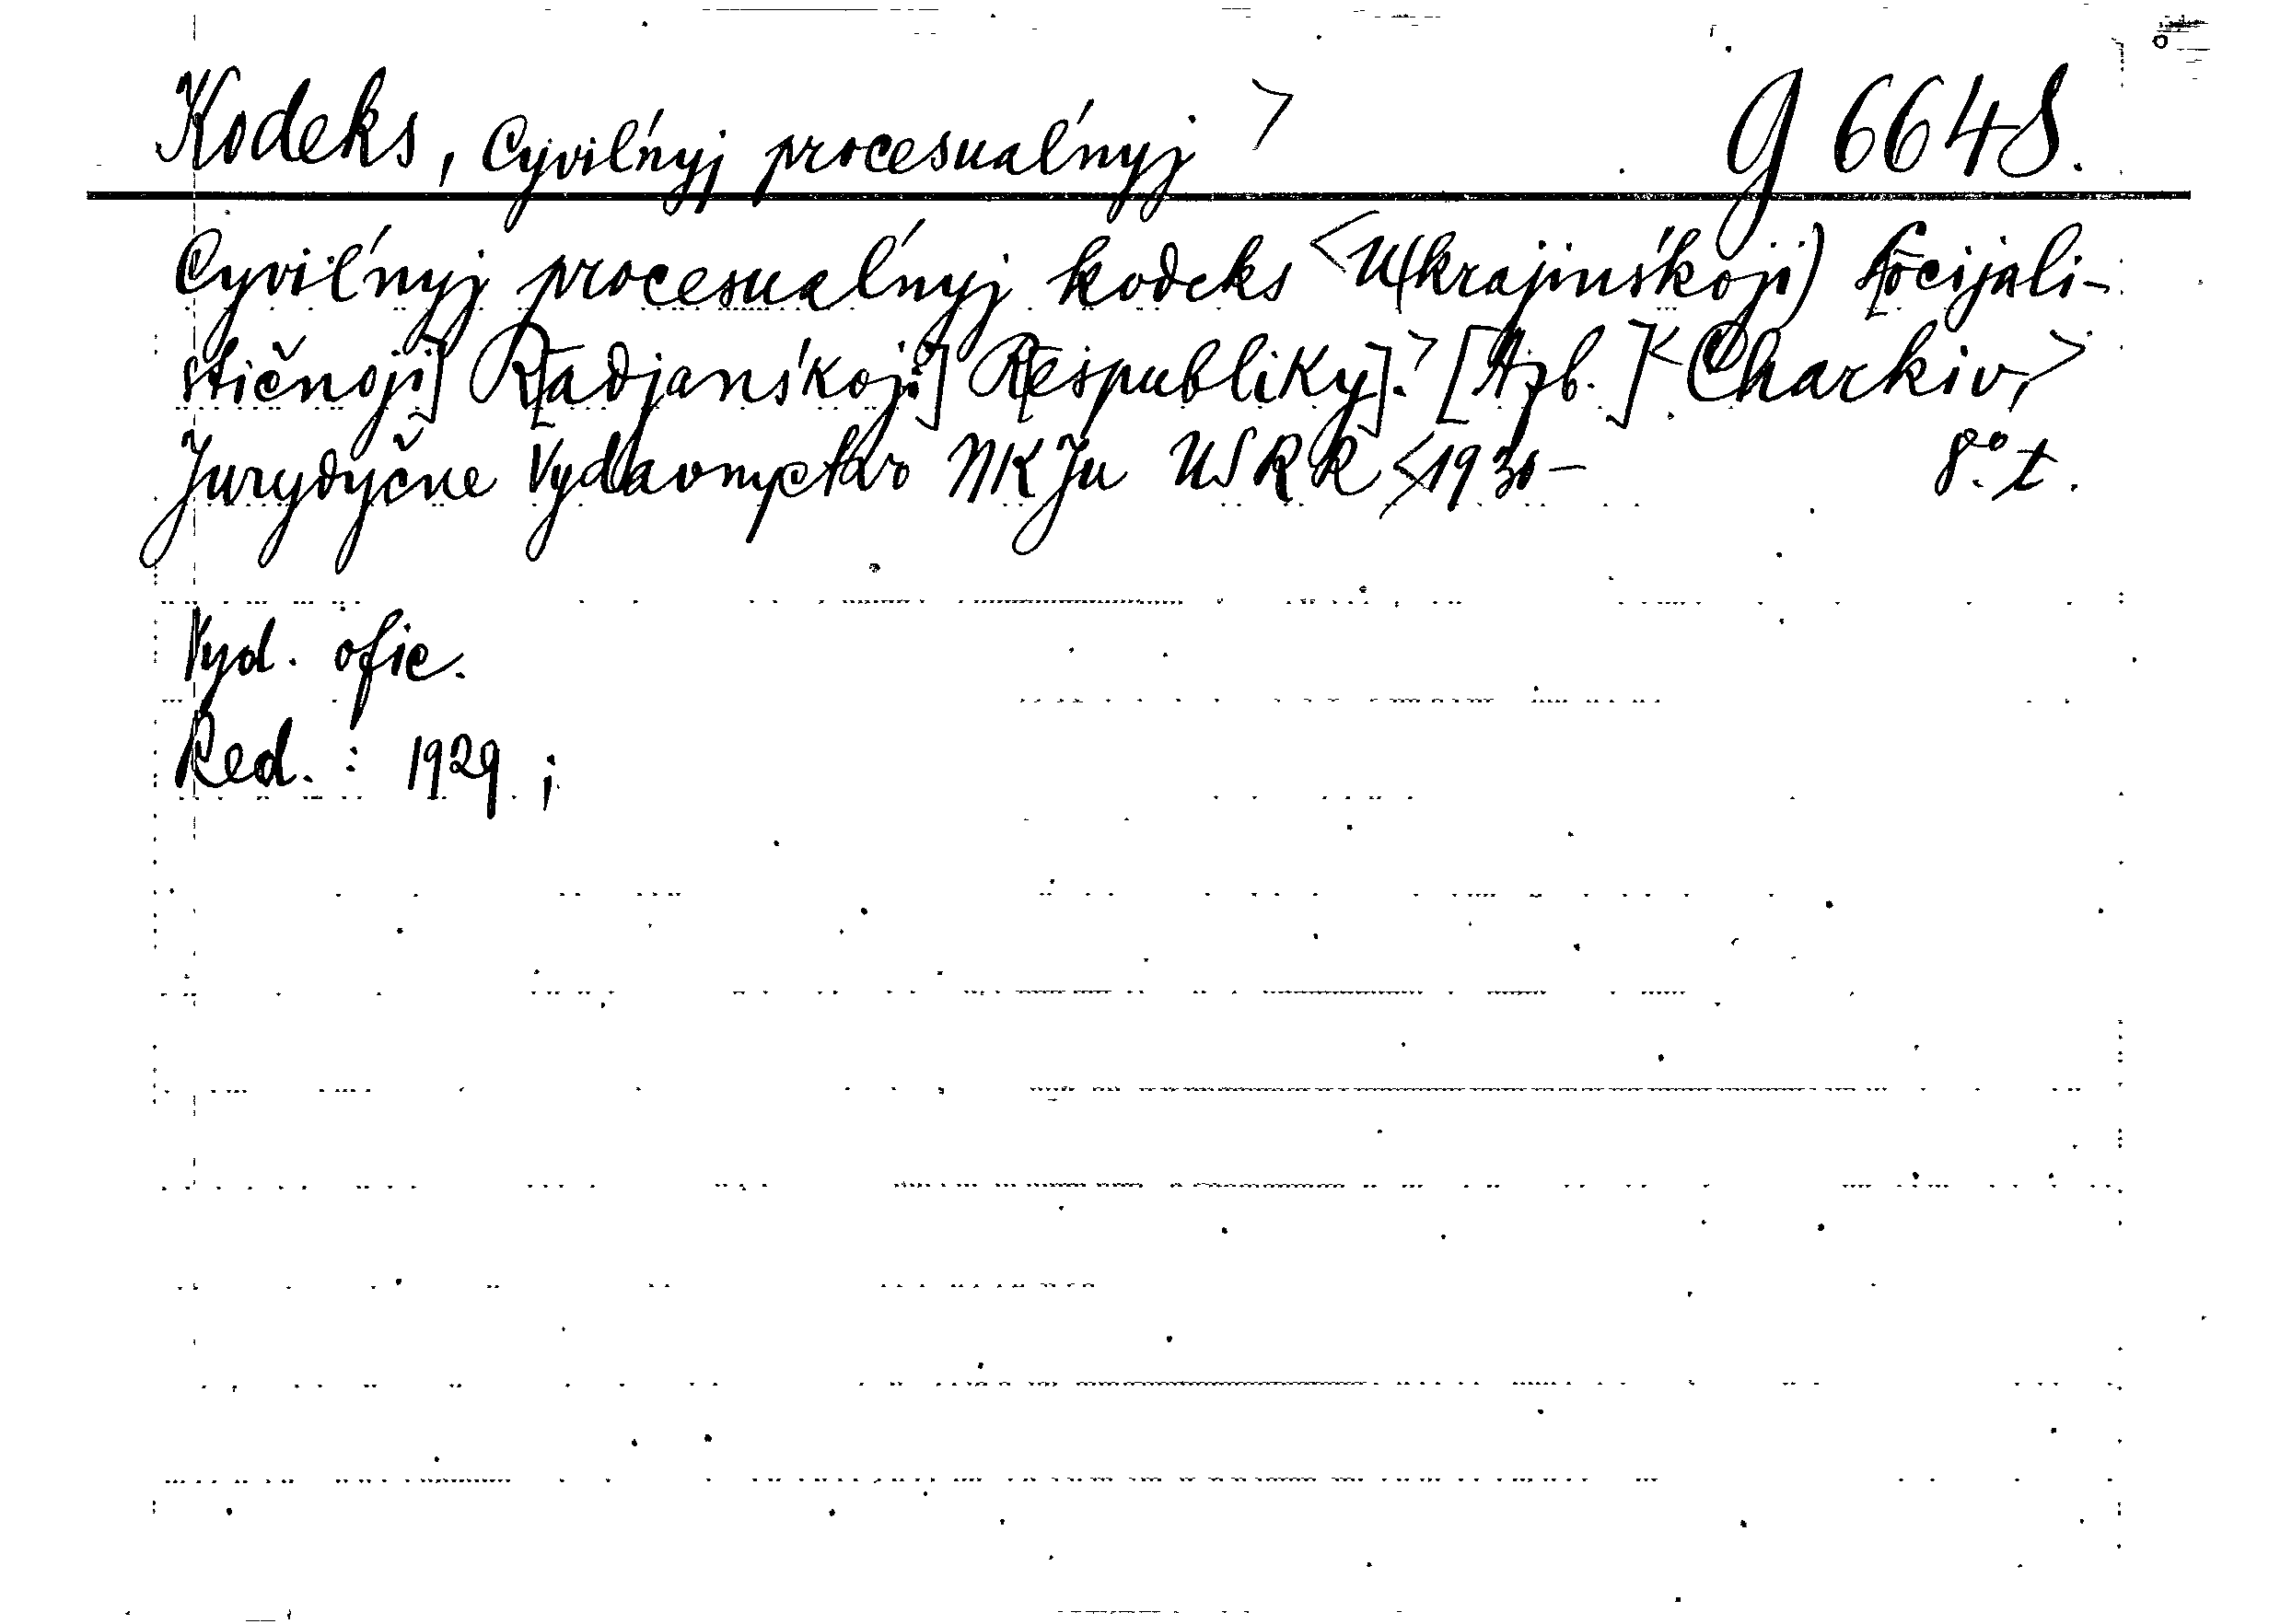 Kodeks, Cyvil'nyj procesual'nyj > g 6648.
Cyvil'nyj procesual'nyj kodeks <U(krajins'koji) S[ocijali-
stičnoji] R[adjans'koji] R[espubliky].> [Azb.] < Charkiv,>
Jurydyčne Vydavnyctvo NKJu USRR <1930- 8°. t.
Vyd. ofic.
Red.: 1929;